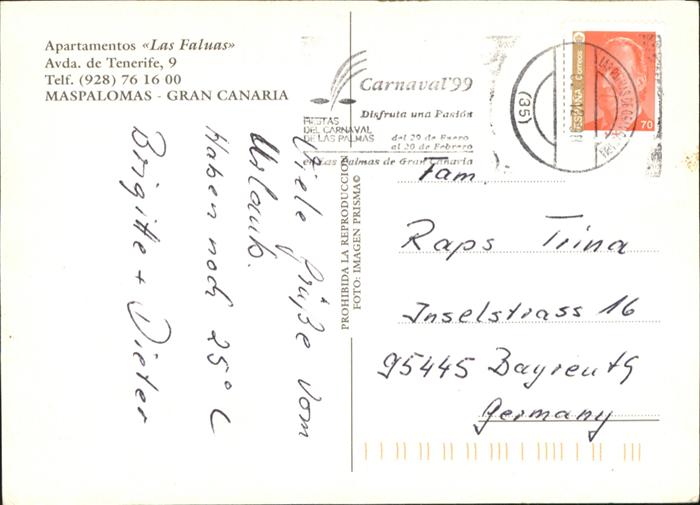 Apartamentos «Las Faluas»
Avda. de Tenerife, 9
Telf. (928) 76 16 00
MASPALOMAS - GRAN CANARIA
Viele Grüße vom
Urlaub.
Haben noch 25° C
Brigitte + Dieter
PROHIBIDA LA REPRODUCCION
FOTO: IMAGEN PRISMA©
FIESTAS
DEL CARNAVAL
DE LAS PALMAS
Carnaval'99
Disfruta una Pasión
del 29 de Enero
al 20 de Febrero
en Las Palmas de Gran Canaria
(35)
ESPAÑA Correos
70
Fam
Raps Trina
Inselstrass 16
95445 Bayreuth
Germany